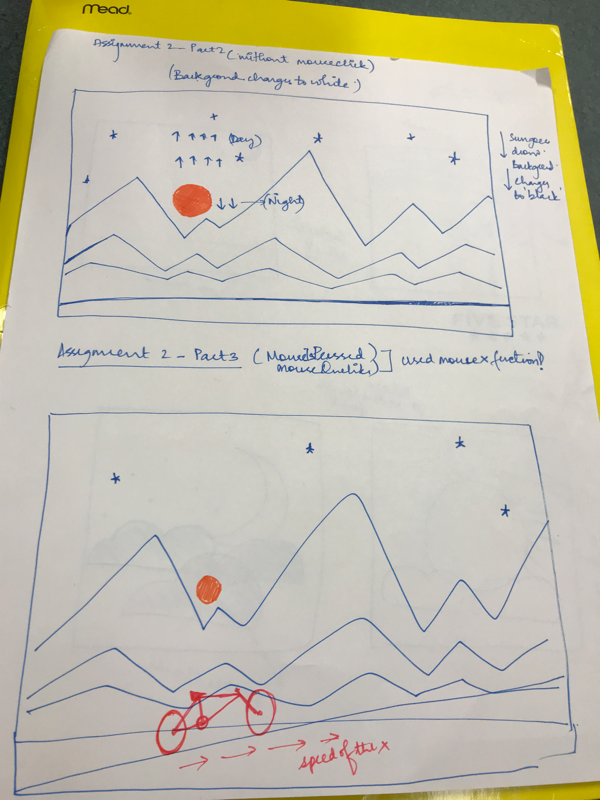 Mead.
Assignment 2 - Part 2 (without mouseclick)
(Background changes to white.)
(Day)
(Night)
Sungoes
down.
Background
Changes
to black
Assignment 2 - Part 3 (MouseIsPressed
] used mousex function!
speed of the x